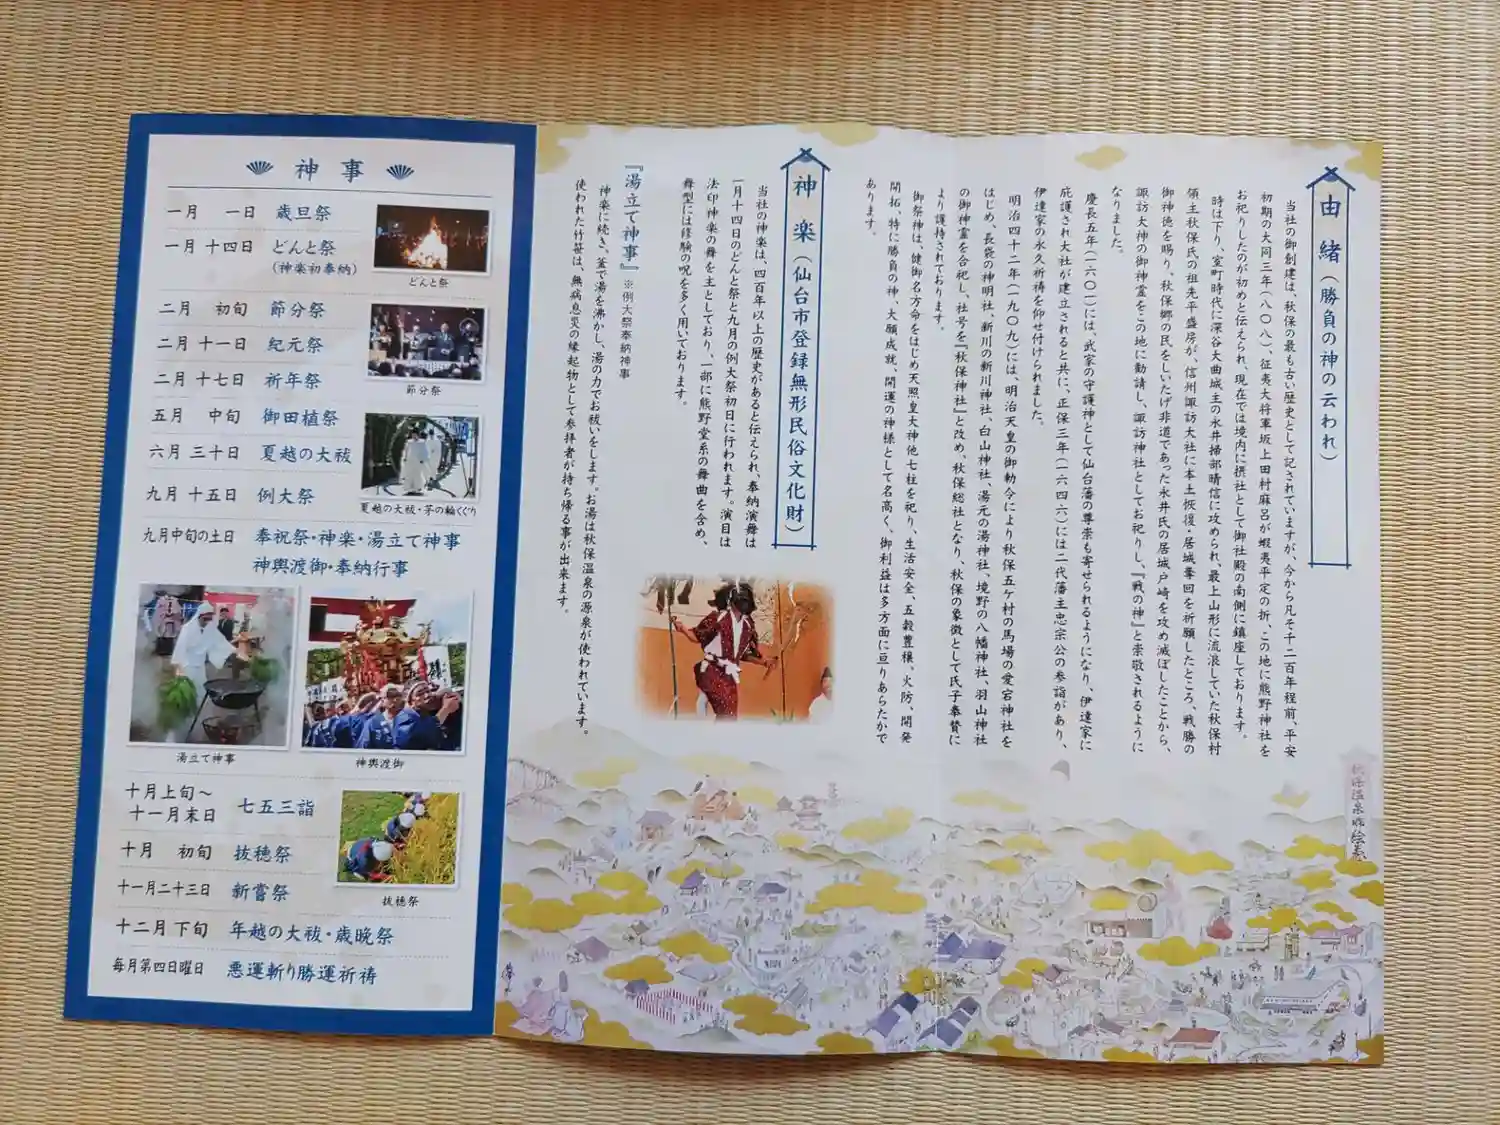 由緒(勝負の神の云われ)
当社の御創建は、秋保の最も古い歴史として記されていますが、今から凡そ千二百年程前、平安
初期の大同三年(八〇八)、征夷大将軍坂上田村麻呂が蝦夷平定の折、この地に熊野神社を
お祀りしたのが初めと伝えられ、現在では境内に摂社として御社殿の南側に鎮座しております。
時は下り、室町時代に深谷大曲城主の永井掃部晴信に攻められ、最上山形に流浪していた秋保村
領主秋保氏の祖先平盛房が、信州諏訪大社に本土恢復・居城奪回を祈願したところ、戦勝の
御神徳を賜り、秋保郷の民をしいたげ非道であった永井氏の居城戸崎を攻め滅ぼしたことから、
諏訪大神の御神霊をこの地に勧請し、諏訪神社としてお祀りし、『戦の神』と崇敬されるように
なりました。
慶長五年(一六〇一)には、武家の守護神として仙台藩の尊崇も寄せられるようになり、伊達家に
庇護され大社が建立されると共に、正保三年(一六四六)には二代藩主忠宗公の参詣があり、
伊達家の永久祈祷を仰せ付けられました。
明治四十二年(一九〇九)には、明治天皇の御勅令により秋保五ケ村の馬場の愛宕神社を
はじめ、長袋の神明社、新川の新川神社・白山神社、湯元の湯神社、境野の八幡神社、羽山神社
の御神霊を合祀し、社号を『秋保神社』と改め、秋保総社となり、秋保の象徴として氏子奉賛に
より護持されております。
御祭神は、健御名方命をはじめ天照皇大神他七柱を祀り、生活安全、五穀豊穣、火防、開発
開拓、特に勝負の神、大願成就、開運の神様として名高く、御利益は多方面に亘りあらたかで
あります。
神楽(仙台市登録無形民俗文化財)
当社の神楽は、四百年以上の歴史があると伝えられ、奉納演舞は
一月十四日のどんと祭と九月の例大祭初日に行われます。演目は
法印神楽の舞を主としており、一部に熊野堂系の舞曲を含め、
舞型には修験の呪を多く用いております。
『湯立て神事』※例大祭奉納神事
神楽に続き、釜で湯を沸かし、湯の力でお祓いをします。お湯は秋保温泉の源泉が使われています。
使われた竹笹は、無病息災の縁起物として参拝者が持ち帰る事が出来ます。
神事
一月 一日 歳旦祭
一月 十四日 どんと祭
(神楽初奉納)
どんと祭
二月 初旬 節分祭
二月 十一日 紀元祭
二月 十七日 祈年祭
節分祭
五月 中旬 御田植祭
六月 三十日 夏越の大祓
九月 十五日 例大祭
夏越の大祓・茅の輪くぐり
九月中旬の土日 奉祝祭・神楽・湯立て神事
神輿渡御・奉納行事
湯立て神事
神輿渡御
十月上旬〜
十一月末日 七五三詣
十月 初旬 抜穂祭
十一月二十三日 新嘗祭
抜穂祭
十二月 下旬 年越の大祓・歳晩祭
毎月第四日曜日 悪運斬り勝運祈祷